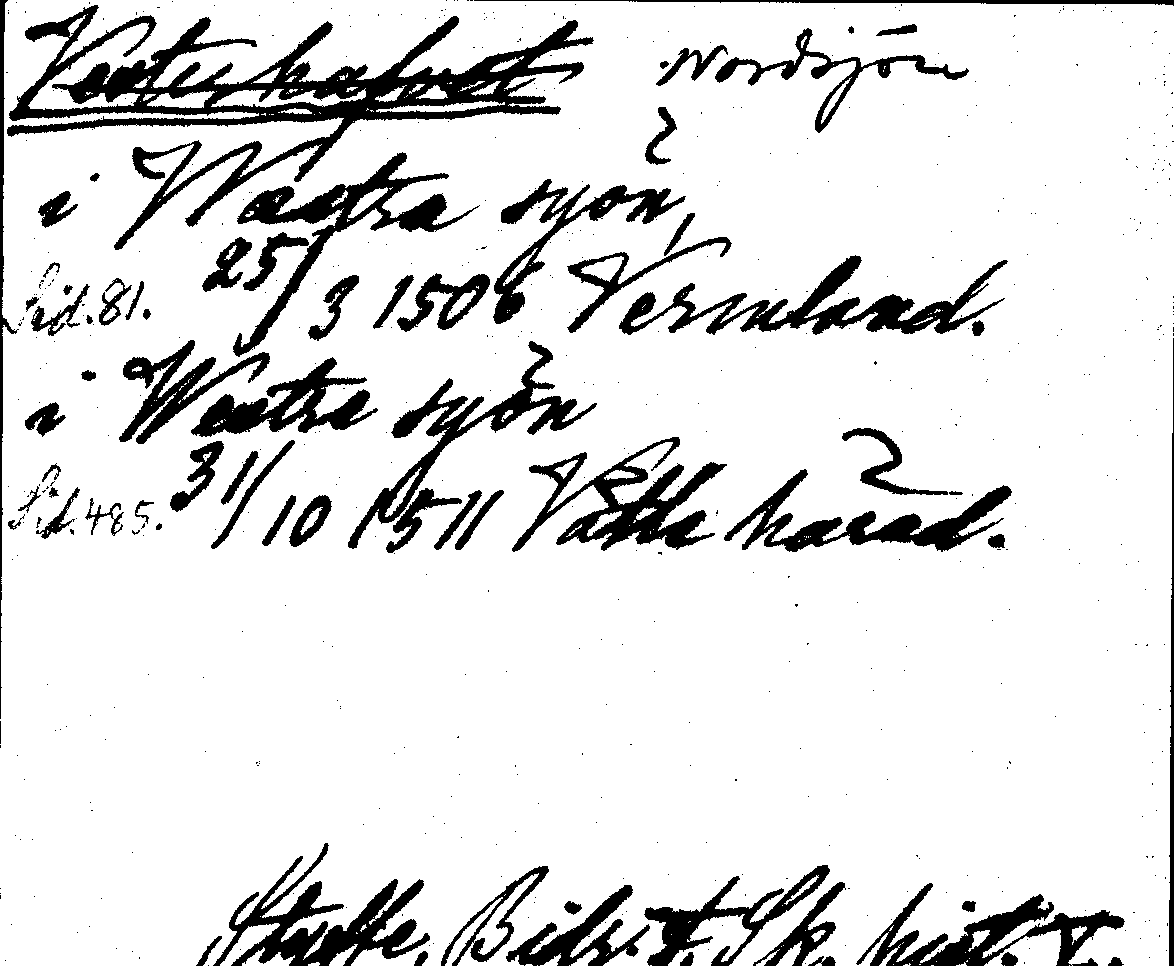 Vesterhafvet Nordsjön
i Wæstra syön,
Sid. 81. 25/3 1506 Vermland.
i Westra syön
Sid. 485. 31/10 1511 Vättle härad.
Styffe, Bidr. t. Sk. hist. V.